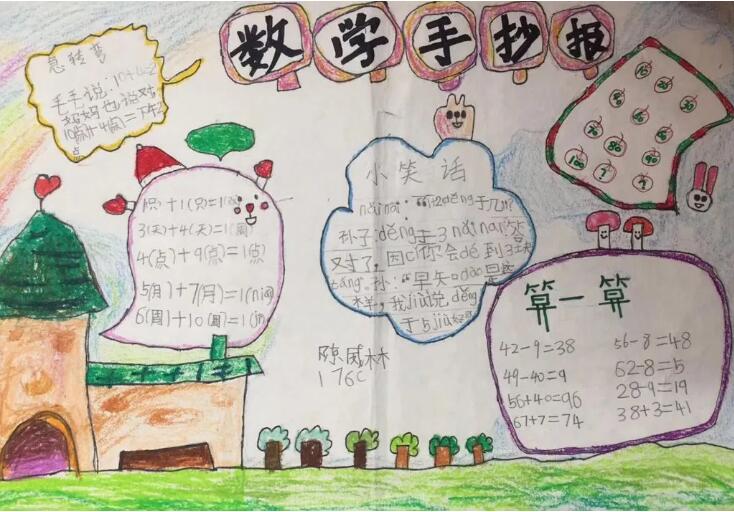 数学手抄报
急转弯
毛毛说:10+4=2
妈妈也说对
10点+4点=下午2
点
1(只)+1(只)=1(双)
3(天)+4(天)=1(周)
4(点)+9(点)=1(点)
5(月)+7(月)=1(nián)
6(周)+10(周)=1(
小笑话
nǎinai:"1+2děng于几?"
孙子:děng于3 nǎinai:答
又寸了,因cǐ你会dé到3块
táng。孙:"早知dào是这
样,我jiù说děng
于5jiù好
10
20
30
70
80
90
100
?
?
算一算
42-9=38
49-40=9
56+40=96
67+7=74
56-8=48
62-8=5
28-9=19
38+3=41
陈威林
176C